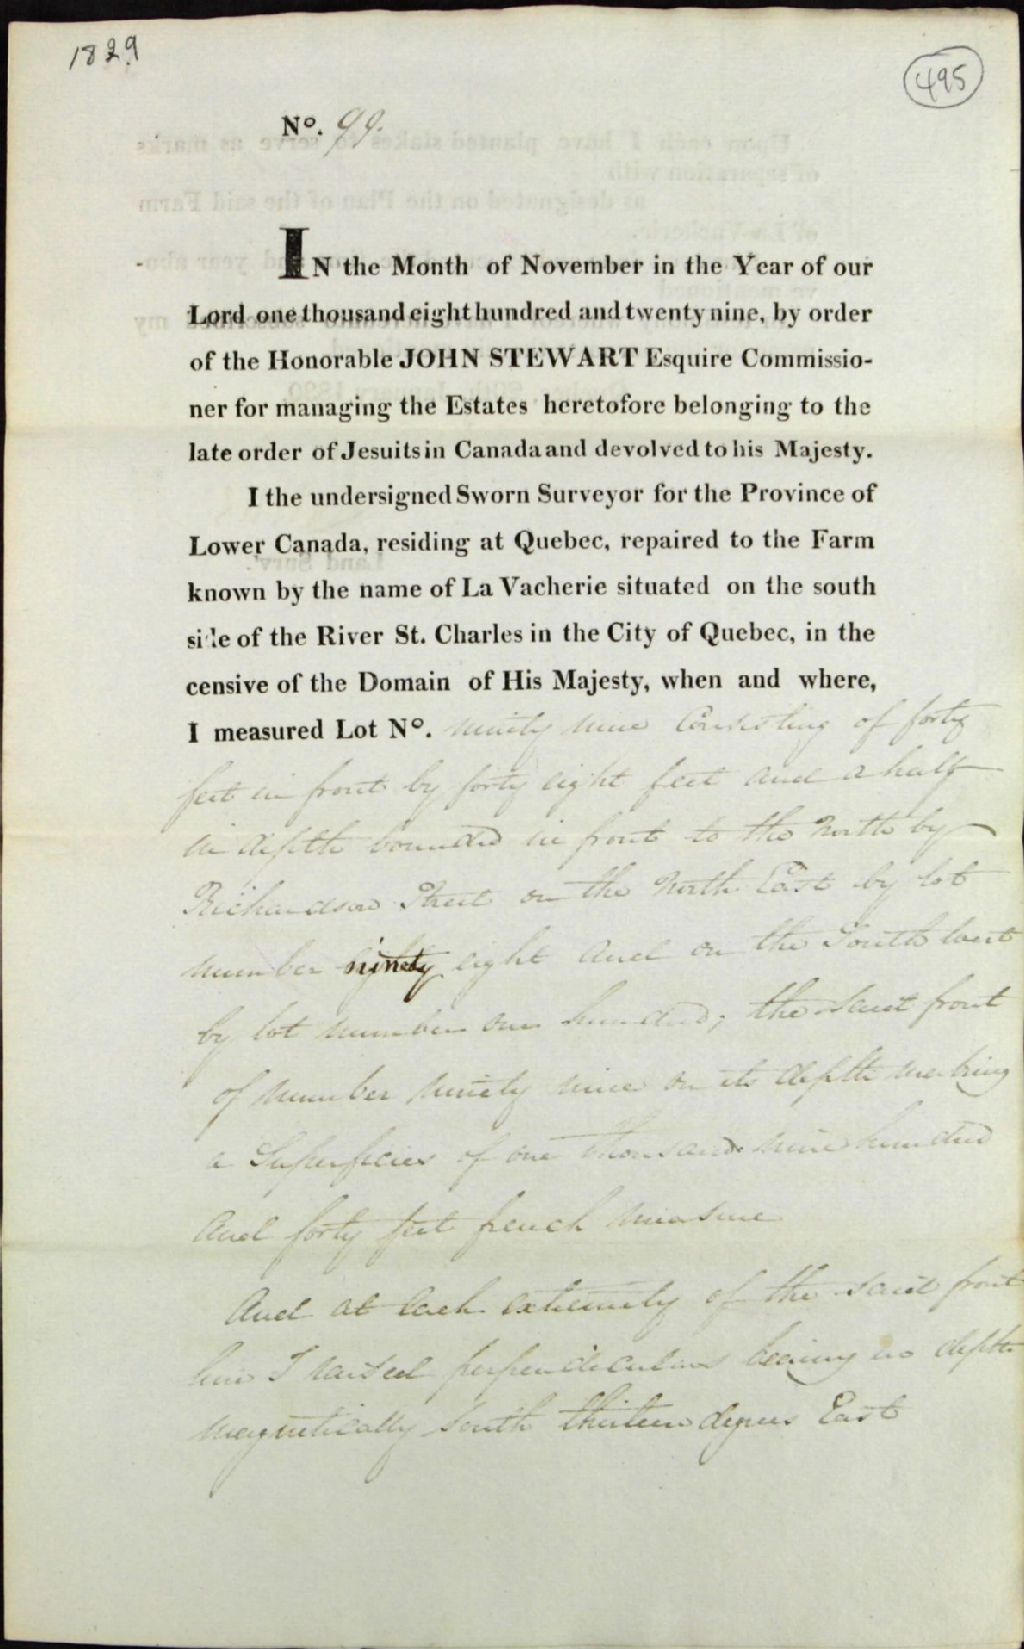 1829
495
No. 99.
IN the Month of November in the Year of our
Lord one thousand eight hundred and twenty nine, by order
of the Honorable JOHN STEWART Esquire Commissio-
ner for managing the Estates heretofore belonging to the
late order of Jesuits in Canada and devolved to his Majesty.
I the undersigned Sworn Surveyor for the Province of
Lower Canada, residing at Quebec, repaired to the Farm
known by the name of La Vacherie situated on the south
side of the River St. Charles in the City of Quebec, in the
censive of the Domain of His Majesty, when and where,
I measured Lot No. ninety nine Consisting of forty
feet in front by forty eight feet and a half
in depth bounded in front to the North by
Richardson Street on the North East by lot
number ninety eight and on the South West
by lot number one hundred; the said front
of number ninety nine on its depth making
a Superficies of one thousand nine hundred
And forty feet french measure
And at each extremity of the said front
line I raised perpendiculars bearing in depth
magnetically South thirteen degrees East